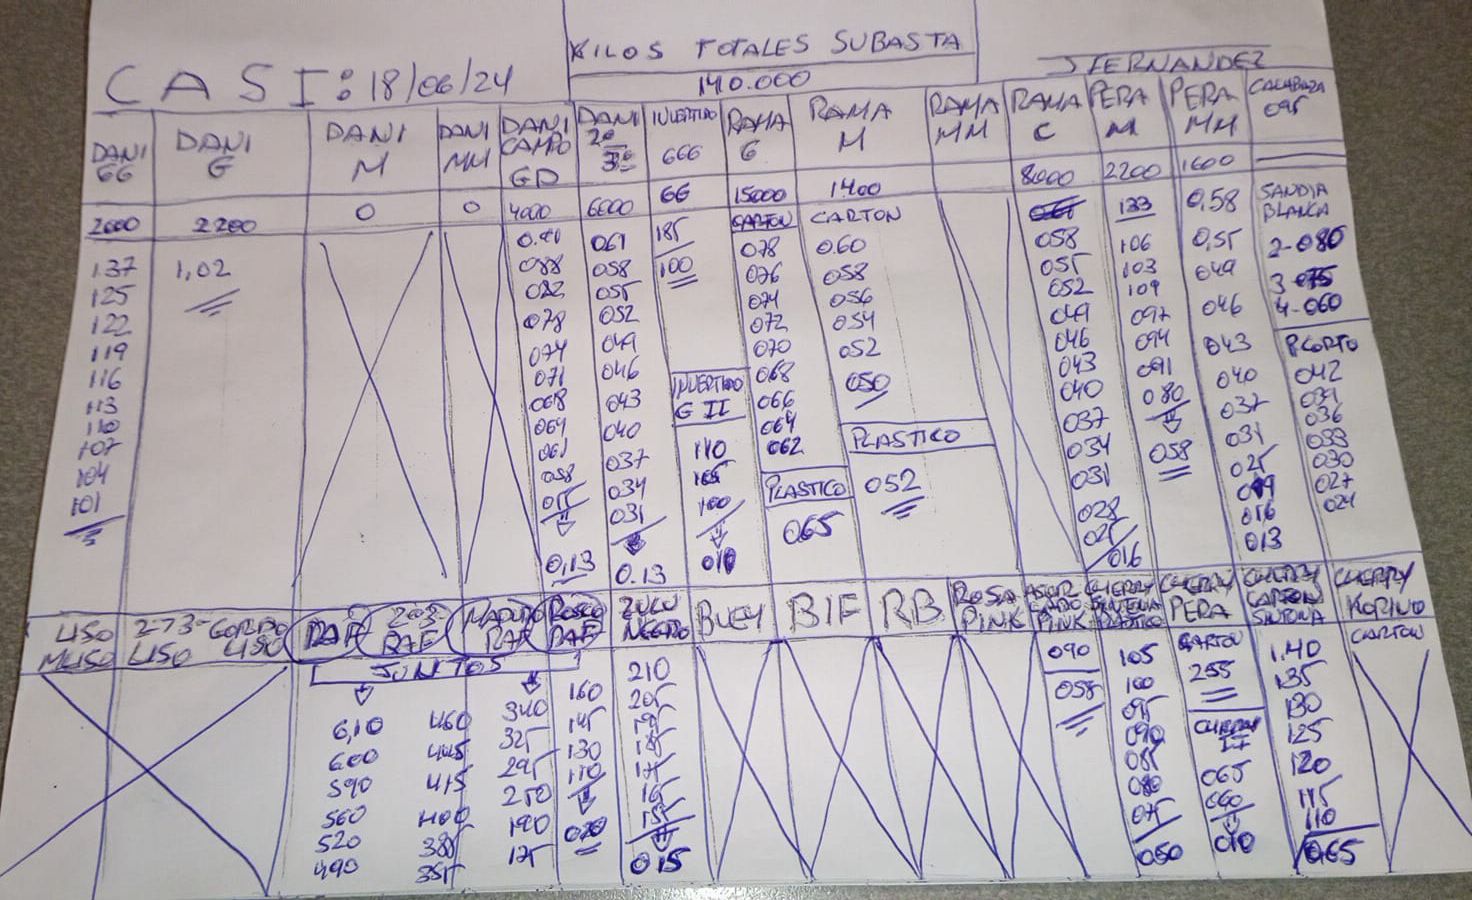 KILOS TOTALES SUBASTA
CASI: 18/06/24
140.000
J FERNANDEZ
DANI GG
DANI G
DANI M
DANI MM
DANI CAMPO GD
DANI 2º 3º
INVERTIDO 666
RAMA G
RAMA M
RAMA MM
RAMA C
PERA M
PERA MM
CALABAZA 095
2000 2200 0 0 4000 6000 66 15000 1400 8000 2200 1600
137
125
122
119
116
113
110
107
104
101
1,02
088
082
078
074
071
068
064
061
058
055
0,13
061
058
055
052
049
046
043
040
037
034
031
0.13
185
100
INVERTIDO G II
110
105
100
010
CARTON
078
076
074
072
070
068
066
064
062
PLASTICO
065
CARTON
060
058
056
054
052
050
PLASTICO
052
058
055
052
049
046
043
040
037
034
031
028
025
016
133
106
103
109
097
094
091
080
058
0,58
0,55
049
046
043
040
037
031
025
019
016
013
SANDIA BLANCA
2-080
3-075
4-060
P CORTO
042
039
036
033
030
027
024
LISO MLISO
2-73- LISO
GORDO LISO
RAF
2º3- RAF
MADURO RAF
ROSCO RAF
ZULU NEGRO
BUEY
BIF
RB
ROSA PINK
ASURCADO PINK
CHERRY PLASTICO
CHERRY PERA
CHERRY CARTON
CHERRY KORINO
JUNTOS
6,10 460 340
600 445 325
590 415 295
560 400 250
520 385 190
490 355 125
160
145
130
110
020
210
205
195
185
175
165
155
015
090
058
105
100
095
090
085
080
075
050
CARTON
255
CHERRY II
065
060
010
1,40
135
130
125
120
115
110
065
CARTON